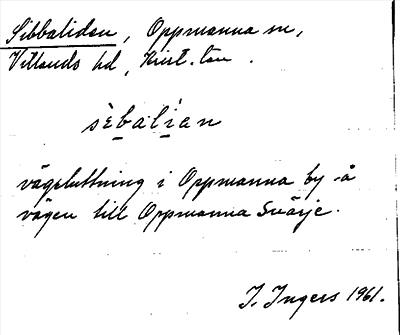 Sibbalidan, Oppmanna sn,
Villands hd, Krist. län.
sèbalían
vägsluttning i Oppmanna by å
vägen till Oppmanna Svärje.
I. Ingers 1961.